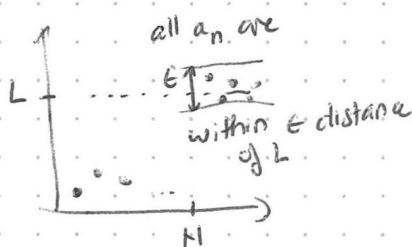 all aₙ are
ϵ
L
within ϵ distance
of L
N